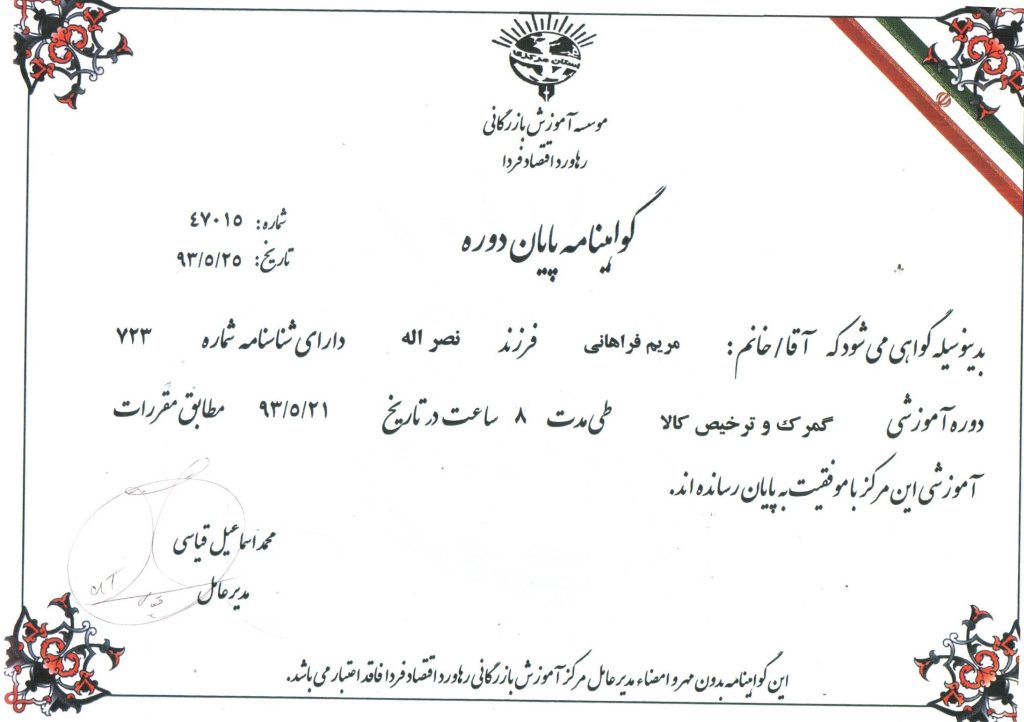 استان مرکزی
موسسه آموزش بازرگانی
رهاورد اقتصاد فردا
گواهینامه پایان دوره
شماره: ٤٧٠١٥
تاریخ: ٩٣/٥/٢٥
بدینوسیله گواهی می شود که آقا/خانم: مریم فراهانی فرزند نصر اله دارای شناسنامه شماره ٧٢٣
دوره آموزشی گمرک و ترخیص کالا طی مدت ٨ ساعت در تاریخ ٩٣/٥/٢١ مطابق مقررات
آموزشی این مرکز با موفقیت به پایان رسانده اند.
محمد اسماعیل قیاسی
مدیر عامل
این گواهینامه بدون مهر و امضاء مدیر عامل مرکز آموزش بازرگانی رهاورد اقتصاد فردا فاقد اعتبار می باشد.